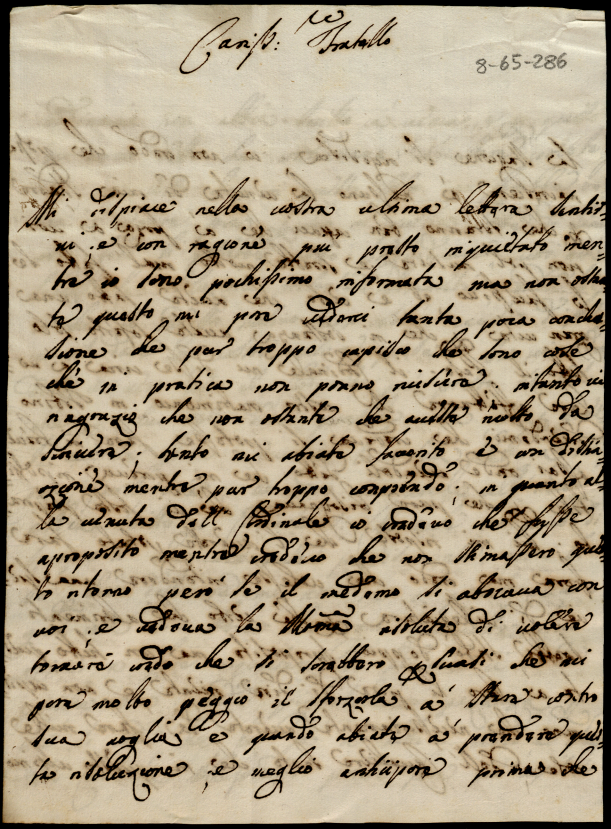 Cariss:mo Fratello
8-65-286
Mi dispiace nella vostra ultima lettera sentir
vi, e con ragione piu prosto inquietato men=
tre io sono pochissimo informata ma non ostan
te questo mi pare vederci tanta poca conclu=
sione che pur troppo capisco che sono cose
che in pratica non ponno riuscire. intanto vi
ringrazio che non ostante che avesse molto da
scrivere, tanto mi abiate favorito e con distin=
zione mentre pur troppo comprendo, in quanto al=
la venuta dell Cardinale io credevo che fusse
aproposito mentre credevo che non stimassero ques=
to ritorno però se il medemo si aboccava con
voi, e vedeva la risoluta di volere
tornare credo che si sarebbero che mi
pare molto peggio il sforzarla a stare contro
sua voglia e quando abiate a prendere ques=
ta risoluzione, e meglio anticipare prima che